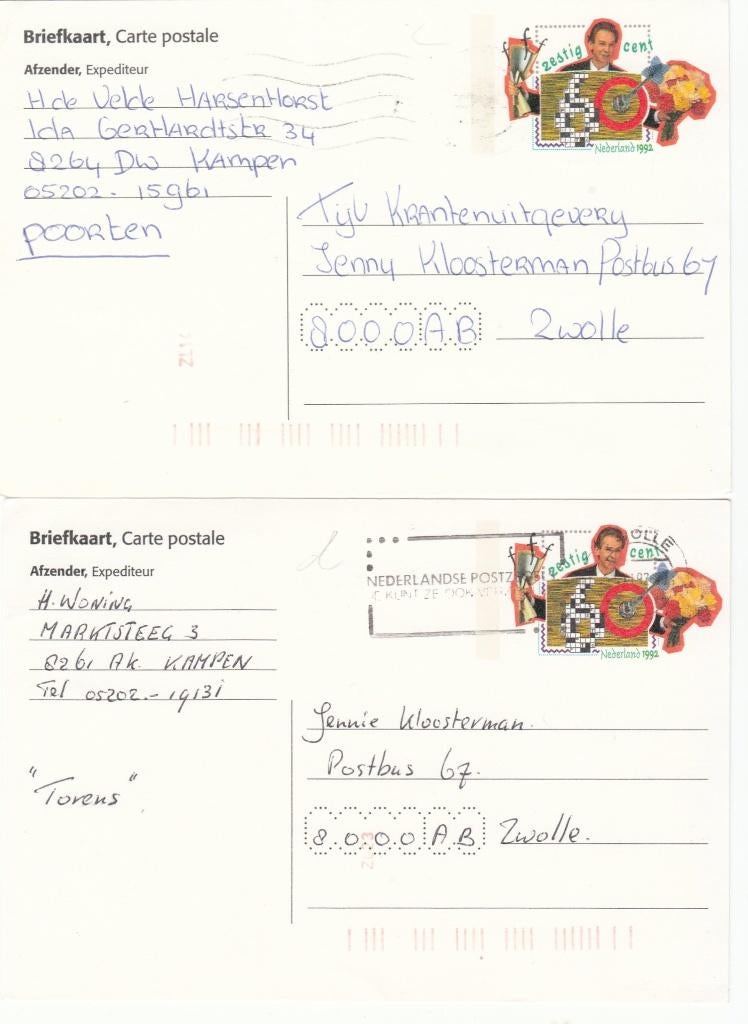 Briefkaart, Carte postale
fff
zestig cent
60
Nederland 1992
Afzender, Expediteur
H de Velde Harsenhorst
Ida Gerhardtstr 34
8264 DW Kampen
05202 - 15961
poorten
Tijl Krantenuitgevery
Jenny Kloosterman Postbus 67
8000 AB Zwolle
Briefkaart, Carte postale
OLLE
fff
zestig cent
60
Nederland 1992
NEDERLANDSE POSTZ
Afzender, Expediteur
H. WONING
MARKTSTEEG 3
8261 AK. KAMPEN
Tel 05202.- 19131
Jennie Kloosterman.
Postbus 67.
"Torens"
8000 AB Zwolle.